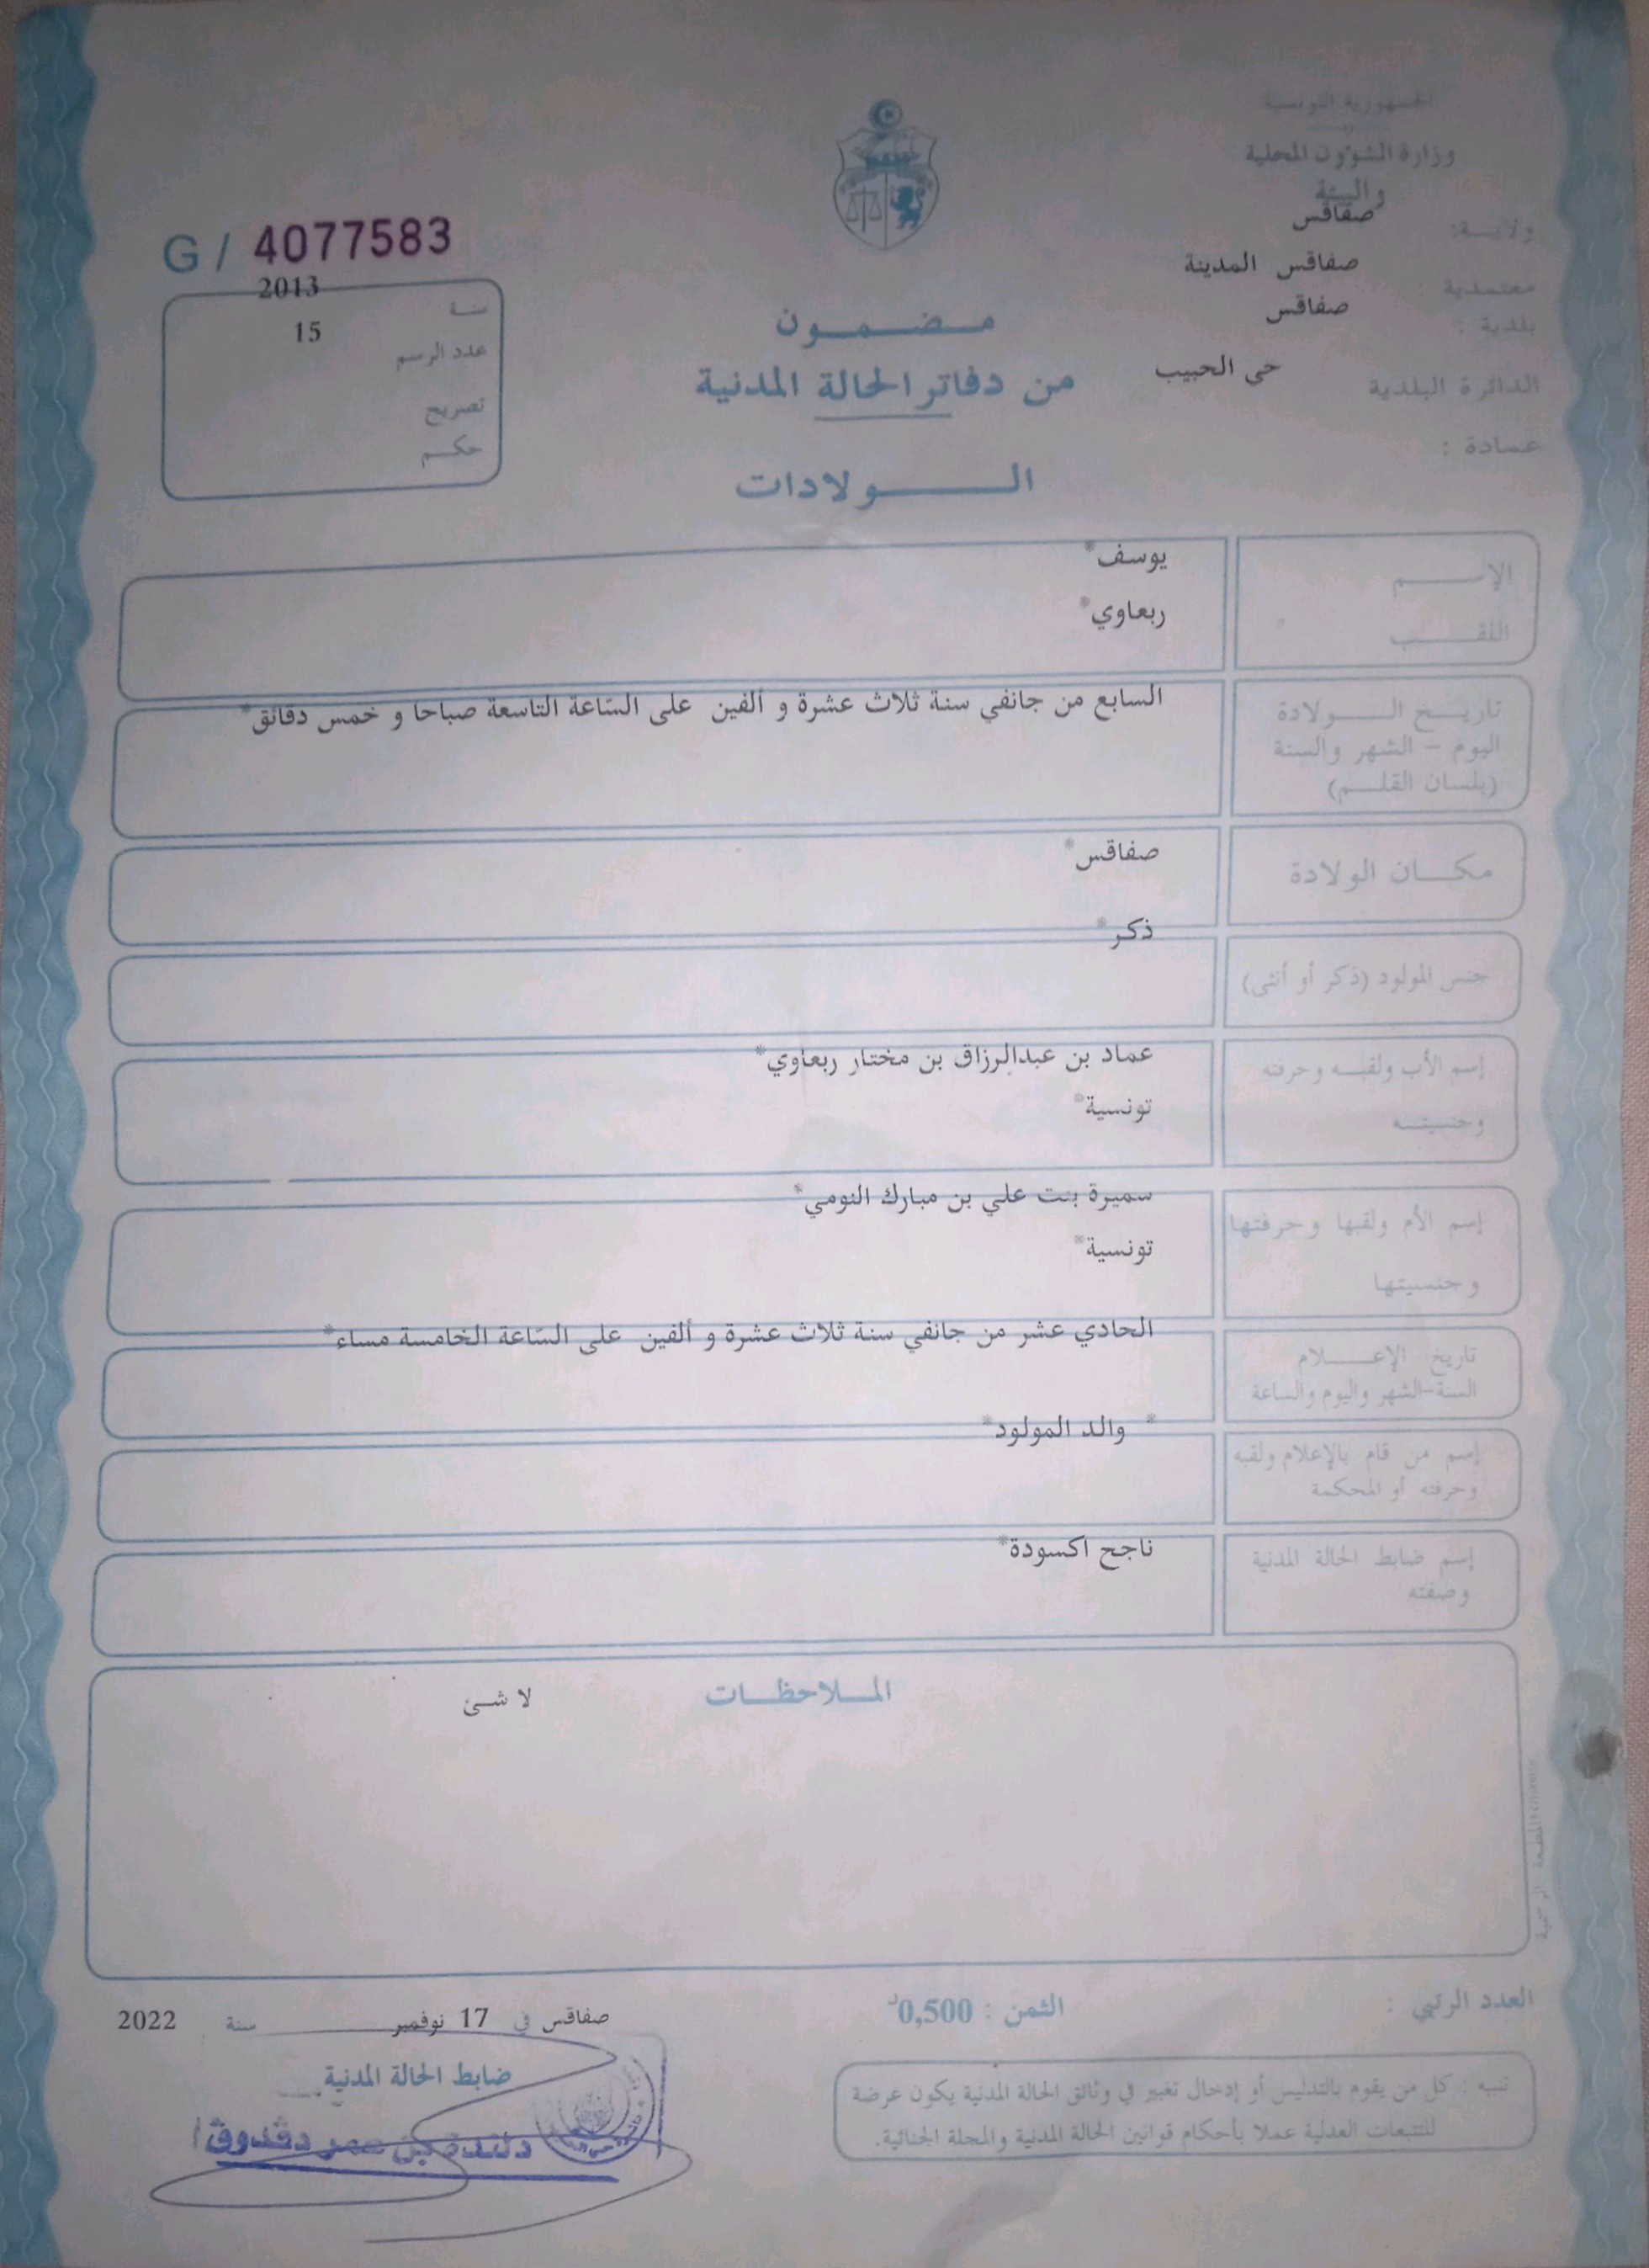 الجمهورية التونسية
وزارة الشؤون المحلية
والبيئة
ولاية: صفاقس
معتمدية : صفاقس المدينة
بلدية : صفاقس
الدائرة البلدية حى الحبيب
عمادة :
G / 4077583
سنة 2013
عدد الرسم 15
تصريح
حكم
مضمون
من دفاتر الحالة المدنية
الولادات
الإسم يوسف*
اللقب ربعاوي*
تاريخ الولادة السابع من جانفي سنة ثلاث عشرة و ألفين على السّاعة التاسعة صباحا و خمس دقائق*
اليوم – الشهر والسنة
(بلسان القلم)
مكان الولادة صفاقس*
جنس المولود (ذكر أو أنثى) ذكر*
إسم الأب ولقبه وحرفته عماد بن عبدالرزاق بن مختار ربعاوي*
وجنسيته تونسية*
إسم الأم ولقبها وحرفتها سميرة بنت علي بن مبارك النومي*
وجنسيتها تونسية*
تاريخ الإعلام الحادي عشر من جانفي سنة ثلاث عشرة و ألفين على السّاعة الخامسة مساء*
السنة-الشهر واليوم والساعة
إسم من قام بالإعلام ولقبه * والد المولود*
وحرفته أو المحكمة
إسم ضابط الحالة المدنية ناجح اكسودة*
وصفته
الملاحظات لا شئ
المطبعة الرسمية
العدد الرتبي :
الثمن : 0,500د
صفاقس في 17 نوفمبر سنة 2022
ضابط الحالة المدنية
تنبيه : كل من يقوم بالتدليس أو إدخال تغيير في وثائق الحالة المدنية يكون عرضة
للتتبعات العدلية عملا بأحكام قوانين الحالة المدنية والمجلة الجنائية.
بن عمر دقدوق